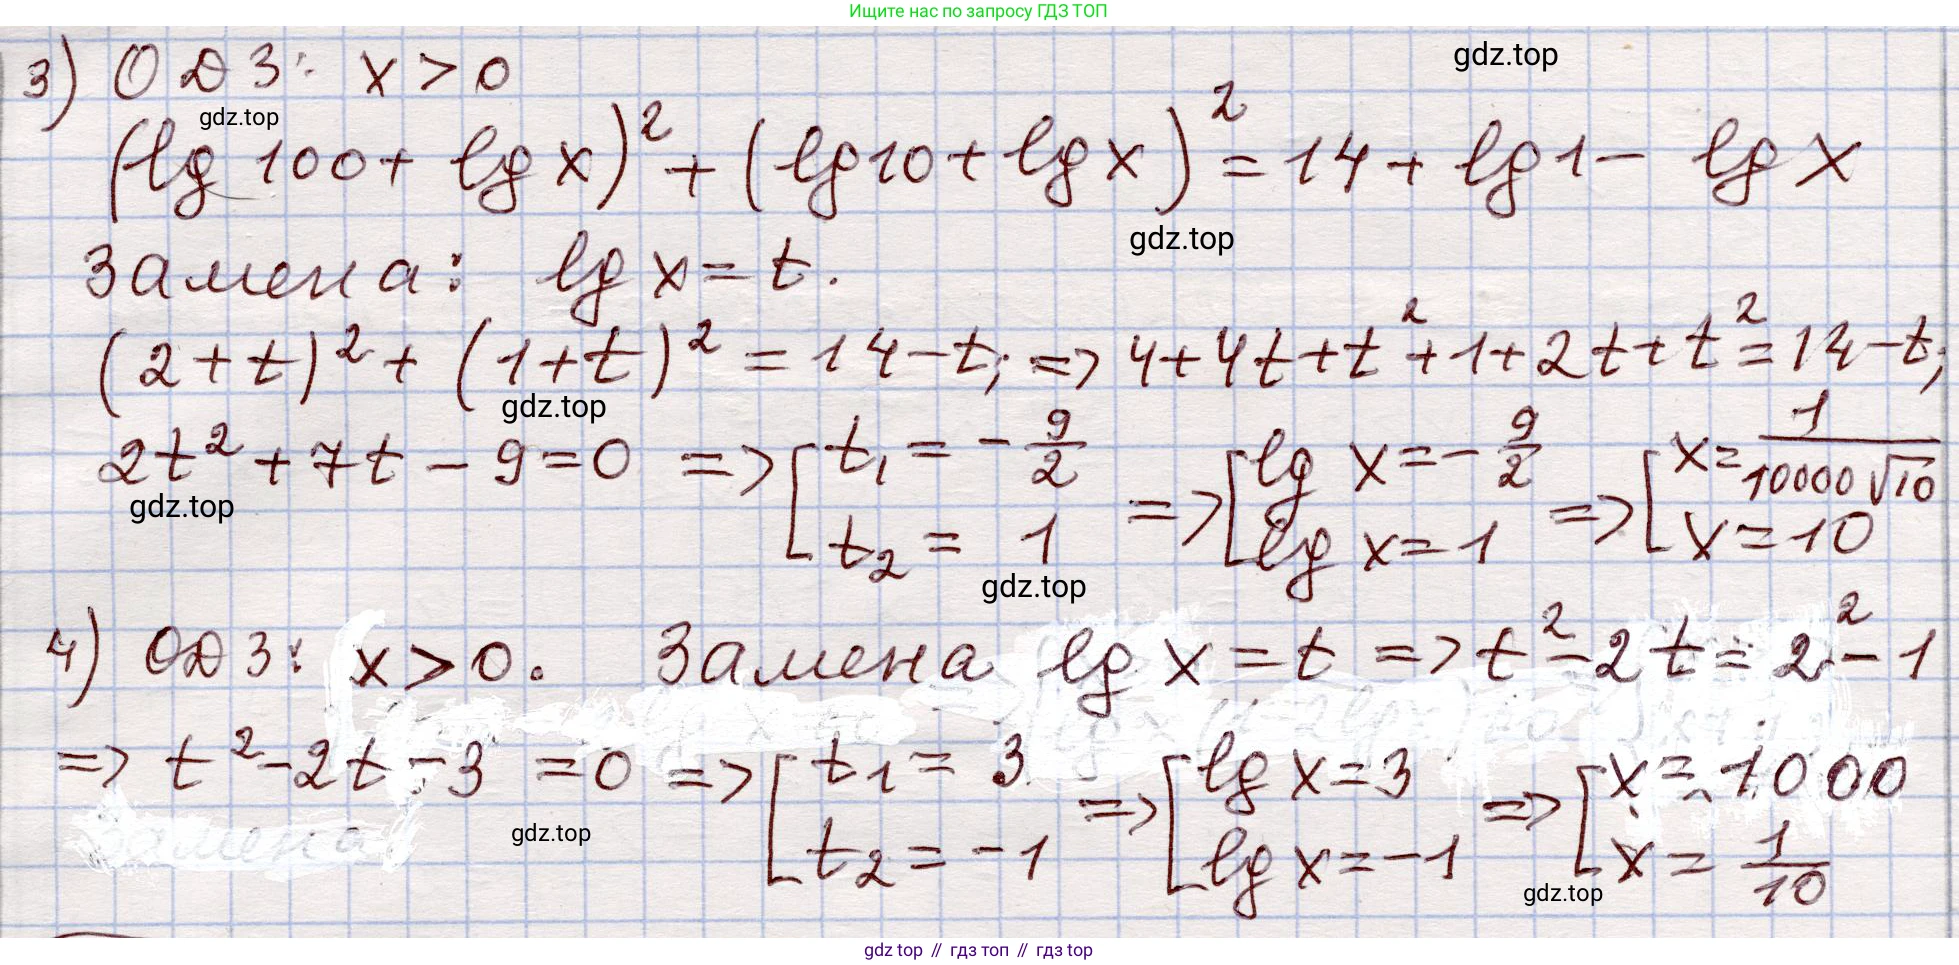 Ищите нас по запросу ГДЗ ТОП
gdz.top
3) ОДЗ: x > 0
gdz.top
(lg 100 + lg x)² + (lg 10 + lg x)² = 14 + lg 1 − lg x
gdz.top
Замена: lg x = t.
(2 + t)² + (1 + t)² = 14 − t; => 4 + 4t + t² + 1 + 2t + t² = 14 − t;
gdz.top
2t² + 7t − 9 = 0 => [ t₁ = −9/2 t₂ = 1 => [ lg x = −9/2 lg x = 1 => [ x = 1/10000√10 x = 10
gdz.top
gdz.top
4) ОДЗ: x > 0. Замена lg x = t => t² − 2t = 2² − 1
=> t² − 2t − 3 = 0 => [ t₁ = 3 t₂ = −1 => [ lg x = 3 lg x = −1 => [ x = 1000 x = 1/10
замена
gdz.top
gdz.top
gdz top // гдз топ // гдз top